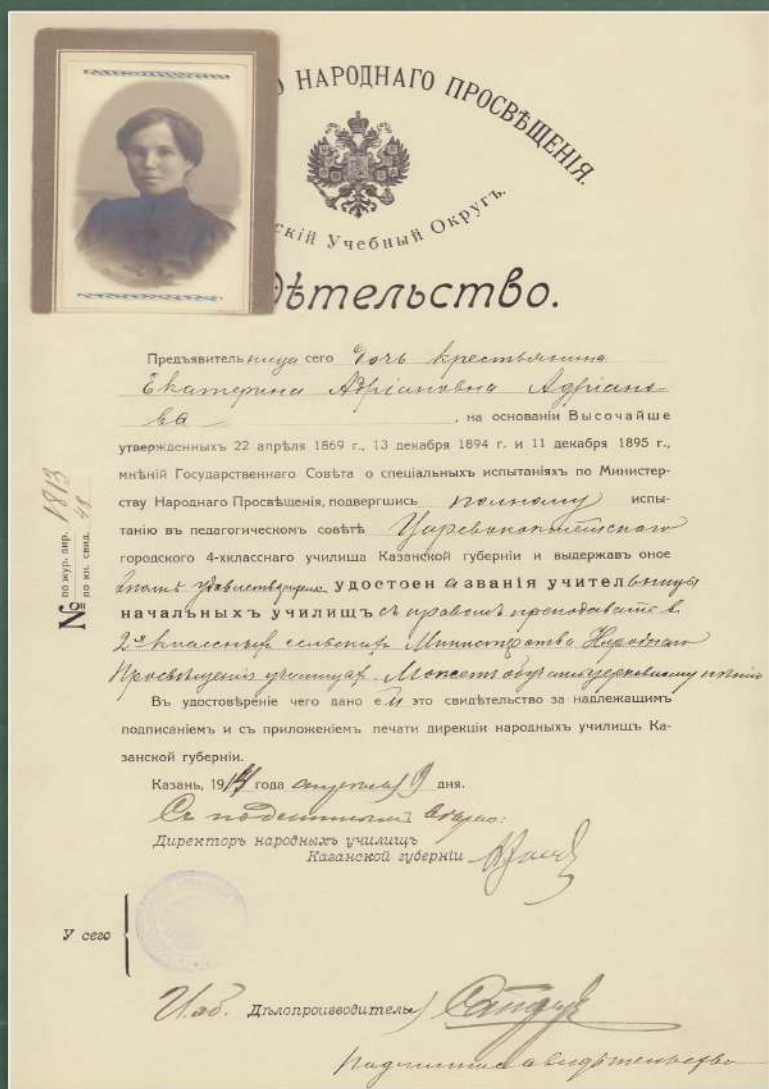 О НАРОДНАГО ПРОСВѢЩЕНІЯ.
скій Учебный Округъ.
дѣтельство.
Предъявительница сего дочь крестьянина
Екатерина Адріановна Адріано-
ва , на основаніи Высочайше
утвержденныхъ 22 апрѣля 1869 г., 13 декабря 1894 г. и 11 декабря 1895 г.,
мнѣній Государственнаго Совѣта о спеціальныхъ испытаніяхъ по Министер-
ству Народнаго Просвѣщенія, подвергшись полному испы-
танію въ педагогическомъ совѣтѣ Царевококшайскаго
городского 4-хкласснаго училища Казанской губерніи и выдержавъ оное
удостоена званія учительницы
начальныхъ училищъ съ правомъ преподавать в
2х классныхъ сельскихъ Министерства Народнаго
Просвѣщенія училищахъ. Можетъ обучать церковному пѣнію
Въ удостовѣреніе чего дано ей это свидѣтельство за надлежащимъ
подписаніемъ и съ приложеніемъ печати дирекціи народныхъ училищъ Ка-
занской губерніи.
Казань, 1914 года апрѣля 9 дня.
Съ подлиннымъ вѣрно:
Директоръ народныхъ училищъ
Казанской губерніи
У сего
И.об. Дѣлопроизводитель
свидѣтельство
№ по жур. дир. 1813
по кн. свид. 48